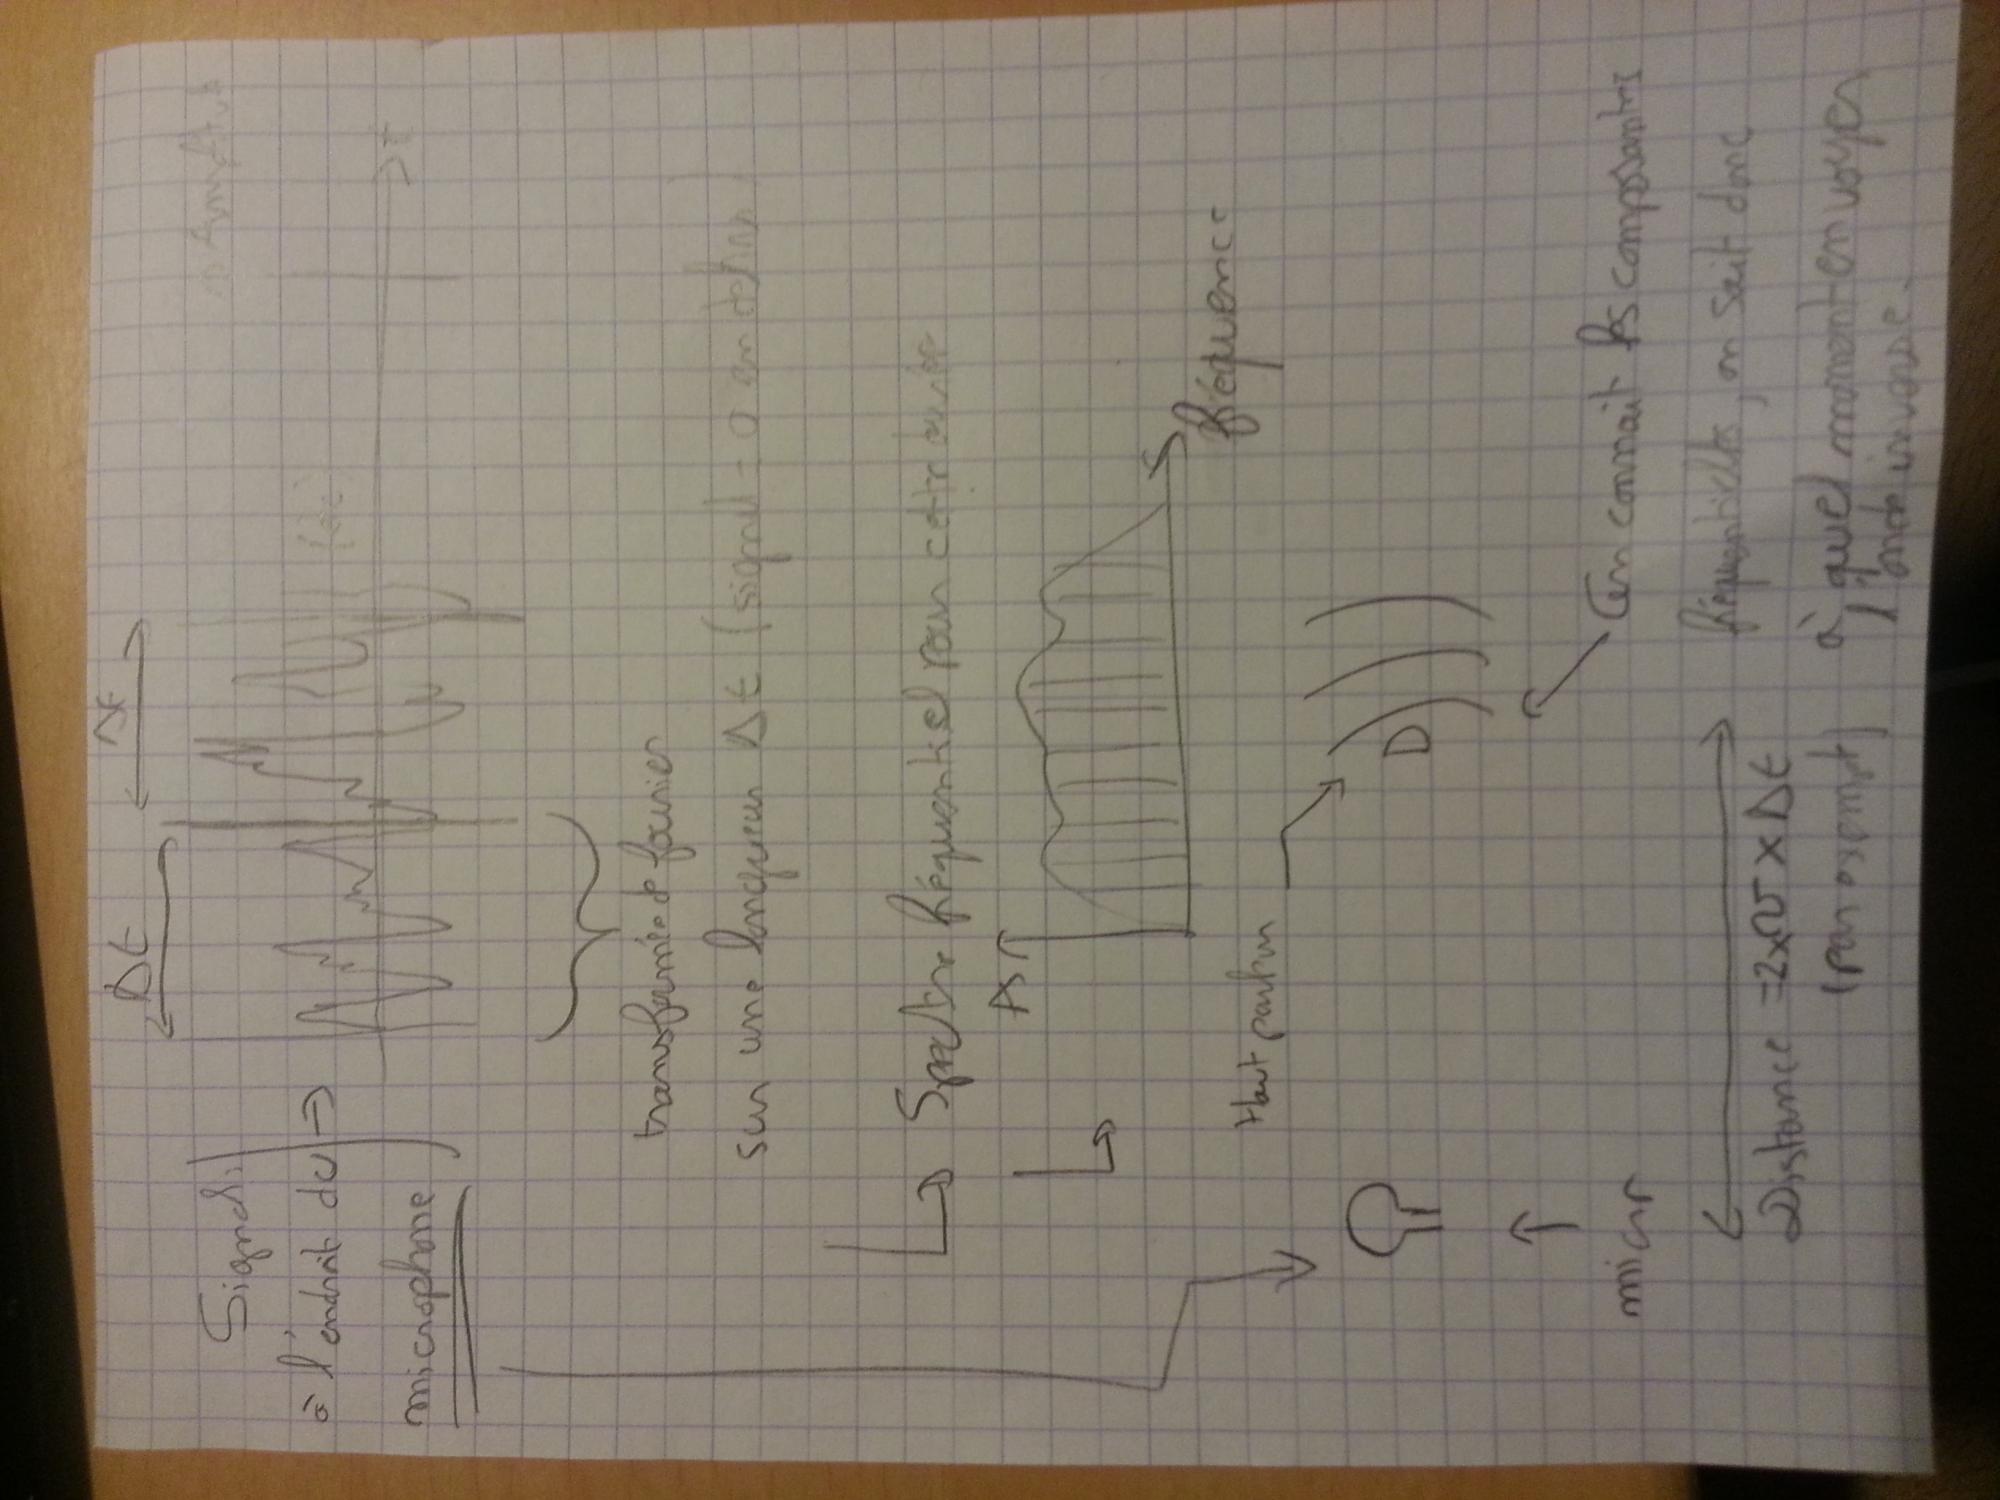 Δt
Δt
Signal
à l'endroit du
microphone
t
transformée de fourier
sur une longueur Δt (signal = 0 en dehors)
Spectre fréquentiel pour cette durée
A
fréquence
Haut parleur
micro
D
(on connait les composantes
fréquentielles, on sait donc
à quel moment envoyer
l'onde inverse.
Distance = 2 x v x Δt
(par exempt)